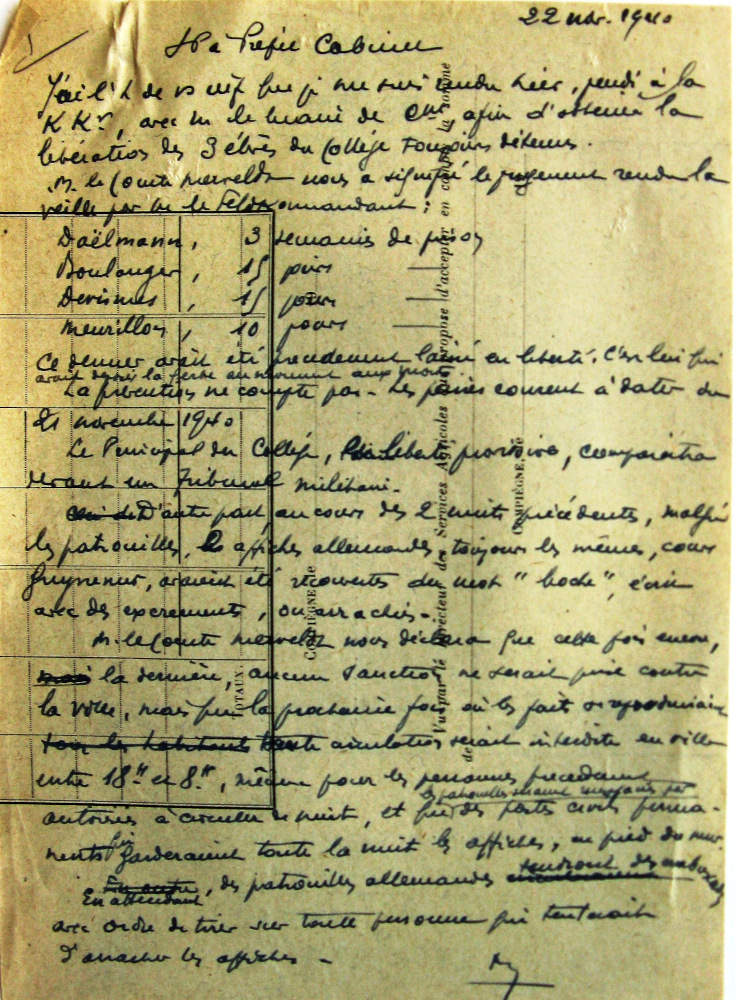 22 nov. 1940
SP à Préfet Cabinet
J'ai l'h de vs que je me suis rendu hier, jeudi à la
K Kr, avec m le maire de afin d'obtenir la
libération des 3 élèves du Collège toujours détenus.
M. le Comte Merveldt nous a signifié le jugement rendu la
veille par m le Feldkommandant :
Daëlmann, 3 semaines de prison
Boulanger, 15 jours —
Devismes, 15 jours —
Meurillon, 10 jours —
Ce dernier avait été précédemment laissé en liberté. C'est lui qui
avait la au moment aux morts.
La prévention ne compte pas - Les peines courent à dater du
21 novembre 1940
Le Principal du Collège, liberté provisoire, comparaîtra
devant un Tribunal militaire.
D'autre part, au cours des 2 nuits précédentes, malgré
les patrouilles, les affiches allemandes toujours les mêmes, cours
Guynemer, avaient été recouvertes du mot "boche", écrit
avec des excréments, ou arrachées.
M. le Comte Merveldt nous déclara que cette fois encore,
mais la dernière, aucune sanction ne serait prise contre
la ville, mais que la prochaine fois où les faits se reproduiraient
tous les habitants toute circulation serait interdite en ville
entre 18h et 8h, même pour les personnes précédemment
les patrouilles seraient par
autorisées à circuler de nuit, et que des postes civils perma-
nents qui garderaient toute la nuit les affiches, au pied du mur.
En outre
En attendant, des patrouilles allemandes tendront des embuscades
avec ordre de tirer sur toute personne qui tenterait
d'arracher les affiches -
TOTAUX.
COMPIÈGNE, le
Vu par le Directeur des Services Agricoles qui propose d'accepter en compte la somme
de
COMPIÈGNE, le